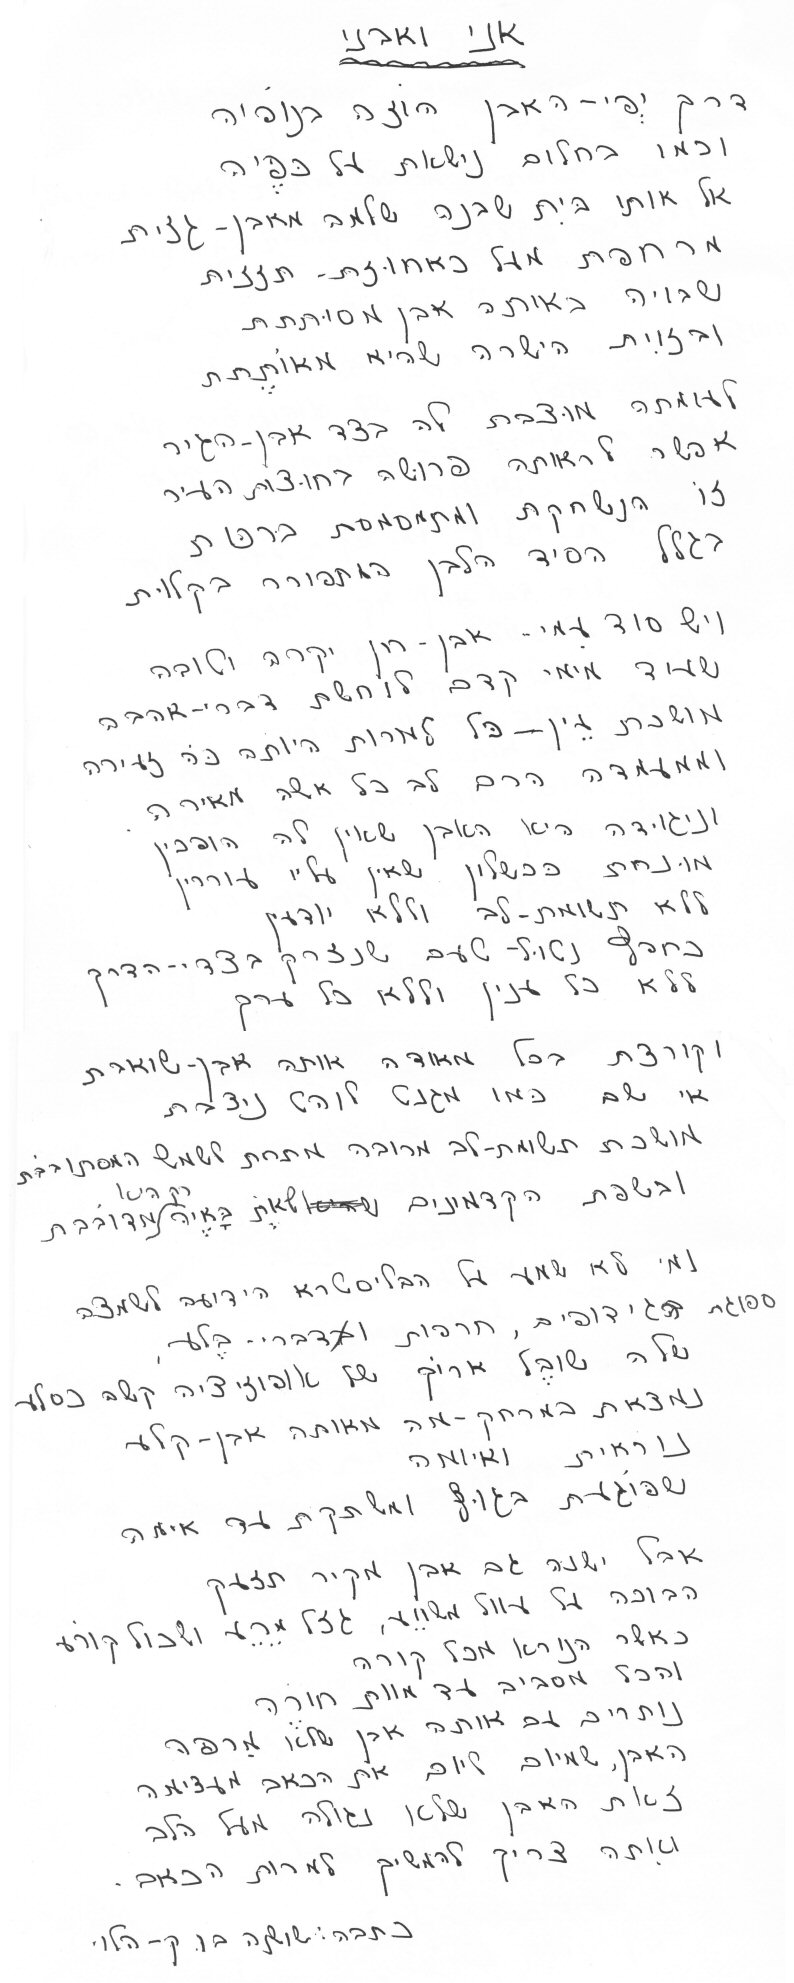 אני ואבני
דרך יפי-האבן הוזה בנופיה
וכמו בחלום נישאת על כפיה
אל אותו בית שבנה שלמה מאבן-גזית
מרחפת מעל כאחוזת-תזזית
שבויה באותה אבן מסותתת
ובזוית הישרה שהיא מאותתת
לעומתה מוצבת לה בצד אבן-הגיר
אפשר לראותה פרושה בחוצות העיר
זו הנשחקת ומתמסמסת ברכות
בגלל הסיד הלבן המתפורר בקלות
ויש סוד עמי- אבן-חן יקרה וטובה
שעוד מימי קדם לוחשת דברי-אהבה
מושכת עין-כל למרות היותה כה זעירה
וממעמדה הרם לב כל אשה מאירה
וניגודה היא האבן שאין לה הופכין
מונחת ככשלון שאין עליו עוררין
ללא תשומת-לב וללא יודעין
כחפץ נטול-טעם שנזרק בצדי-הדרך
ללא כל ענין וללא כל ערך
וקורצת בכל מאודה אותה אבן-שואבת
אי שם כמו מגנט לוהט ניצבת
מושכת תשומת-לב מרובה מתחת לשמש המסתובבת
ובשפת הקדמונים רק היא מדובבת
ומי לא שמע על הבליסטרא הידועה לשמצה
ספוגת גידופים, חרפות ודברי-בלע,
שלה שובל ארוך של אופוזיציה קשה כסלע
נמצאת במרחק-מה מאותה אבן-קלע
נוראית ואיומה
שפוגעת בגוף ומשתקת עד אימה
אבל ישנה גם אבן מקיר תזעק
הבוכה על עוול משווע, גזל מרע ושכול קורע
כאשר הנורא מכל קורה
והכל מסביב עד מוות חורה
נותרים עם אותה אבן שלא מרפה
האבן, שמיום ליום את הכאב מעצימה
זאת האבן שלא נגולה מעל הלב
ואתה צריך להמשיך למרות הכאב.
כתבה: שושנה בן ק-הלוי